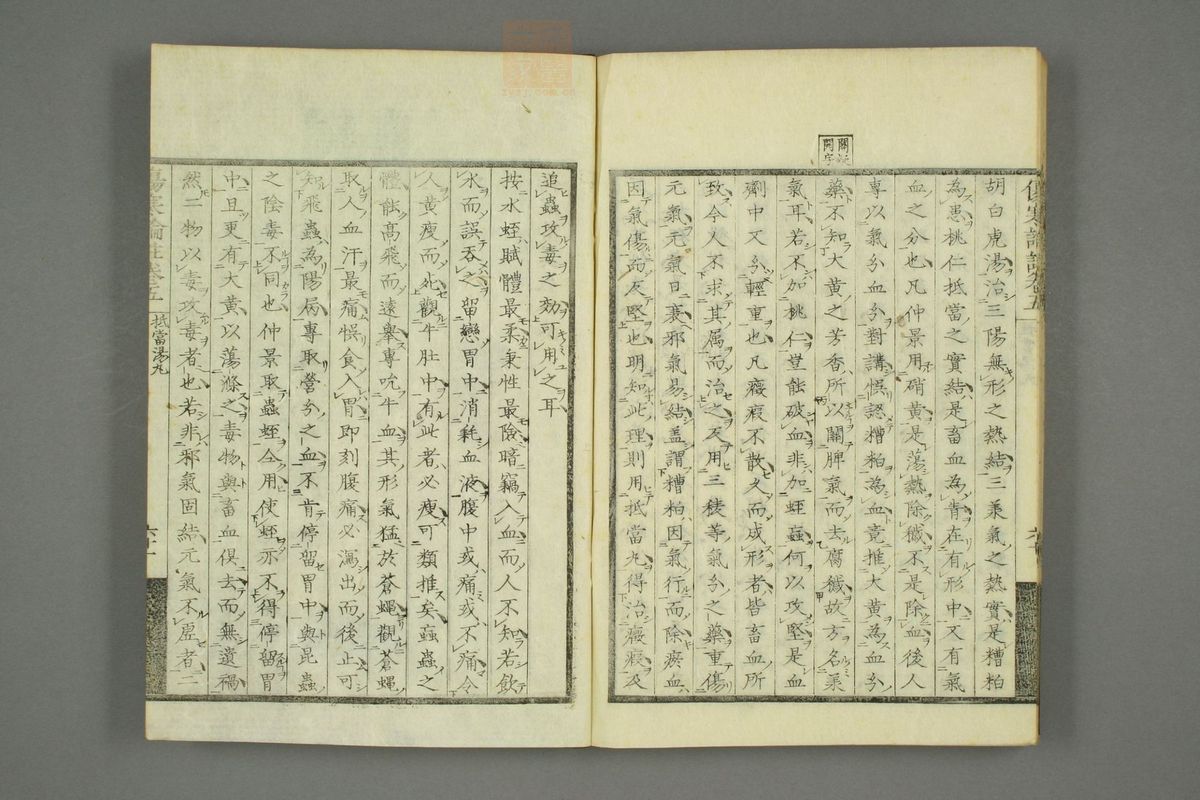 胡白虎湯治三陽無形之熱結三承氣之熱實是糟粕
為患桃仁抵當之實結是畜血為眚在有形中又有氣
血之分也凡仲景用硝黃是蕩熱除穢不是除血後人
專以氣分血分對講悞認糟粕為血竟推大黃為血分
藥不知大黃之芳香所以開脾氣而去腐穢故方名承
氣耳若不加桃仁豈能破血非加蛭蟲何以攻堅是血
劑中又分輕重也凡癥瘕不散久而成形者皆畜血所
致今人不求其属而治之反用三稜等氣分之藥重傷
元氣元氣日衰邪氣易結盖謂糟粕因氣行而除瘀血
因氣傷而反堅也明知此理則用抵當丸得治癥瘕及
追蟲攻毒之効可用之耳
按水蛭賦體最柔秉性最險暗竊入血而人不知若飲
水而誤吞之留戀胃中消耗血液腹中或痛或不痛令
人黃瘦而死觀牛肚中有此者必瘦可類推矣蝱蟲之
體能髙飛而遠舉專吮牛血其形氣猛於蒼蠅觀蒼蠅
取人血汗最痛悞食入胃即刻腹痛必瀉出而後止可
知飛蟲為陽病專取營分之血不肯停留胃中與昆蟲
之陰毒不同也仲景取蟲蛭仝用使蛭亦不得停留胃
中且更有大黃以蕩滌之毒物與畜血俱去而無遺禍
然二物以毒攻毒者也若非邪氣固結元氣不虛者二
傷寒論註卷五
抵當湯丸